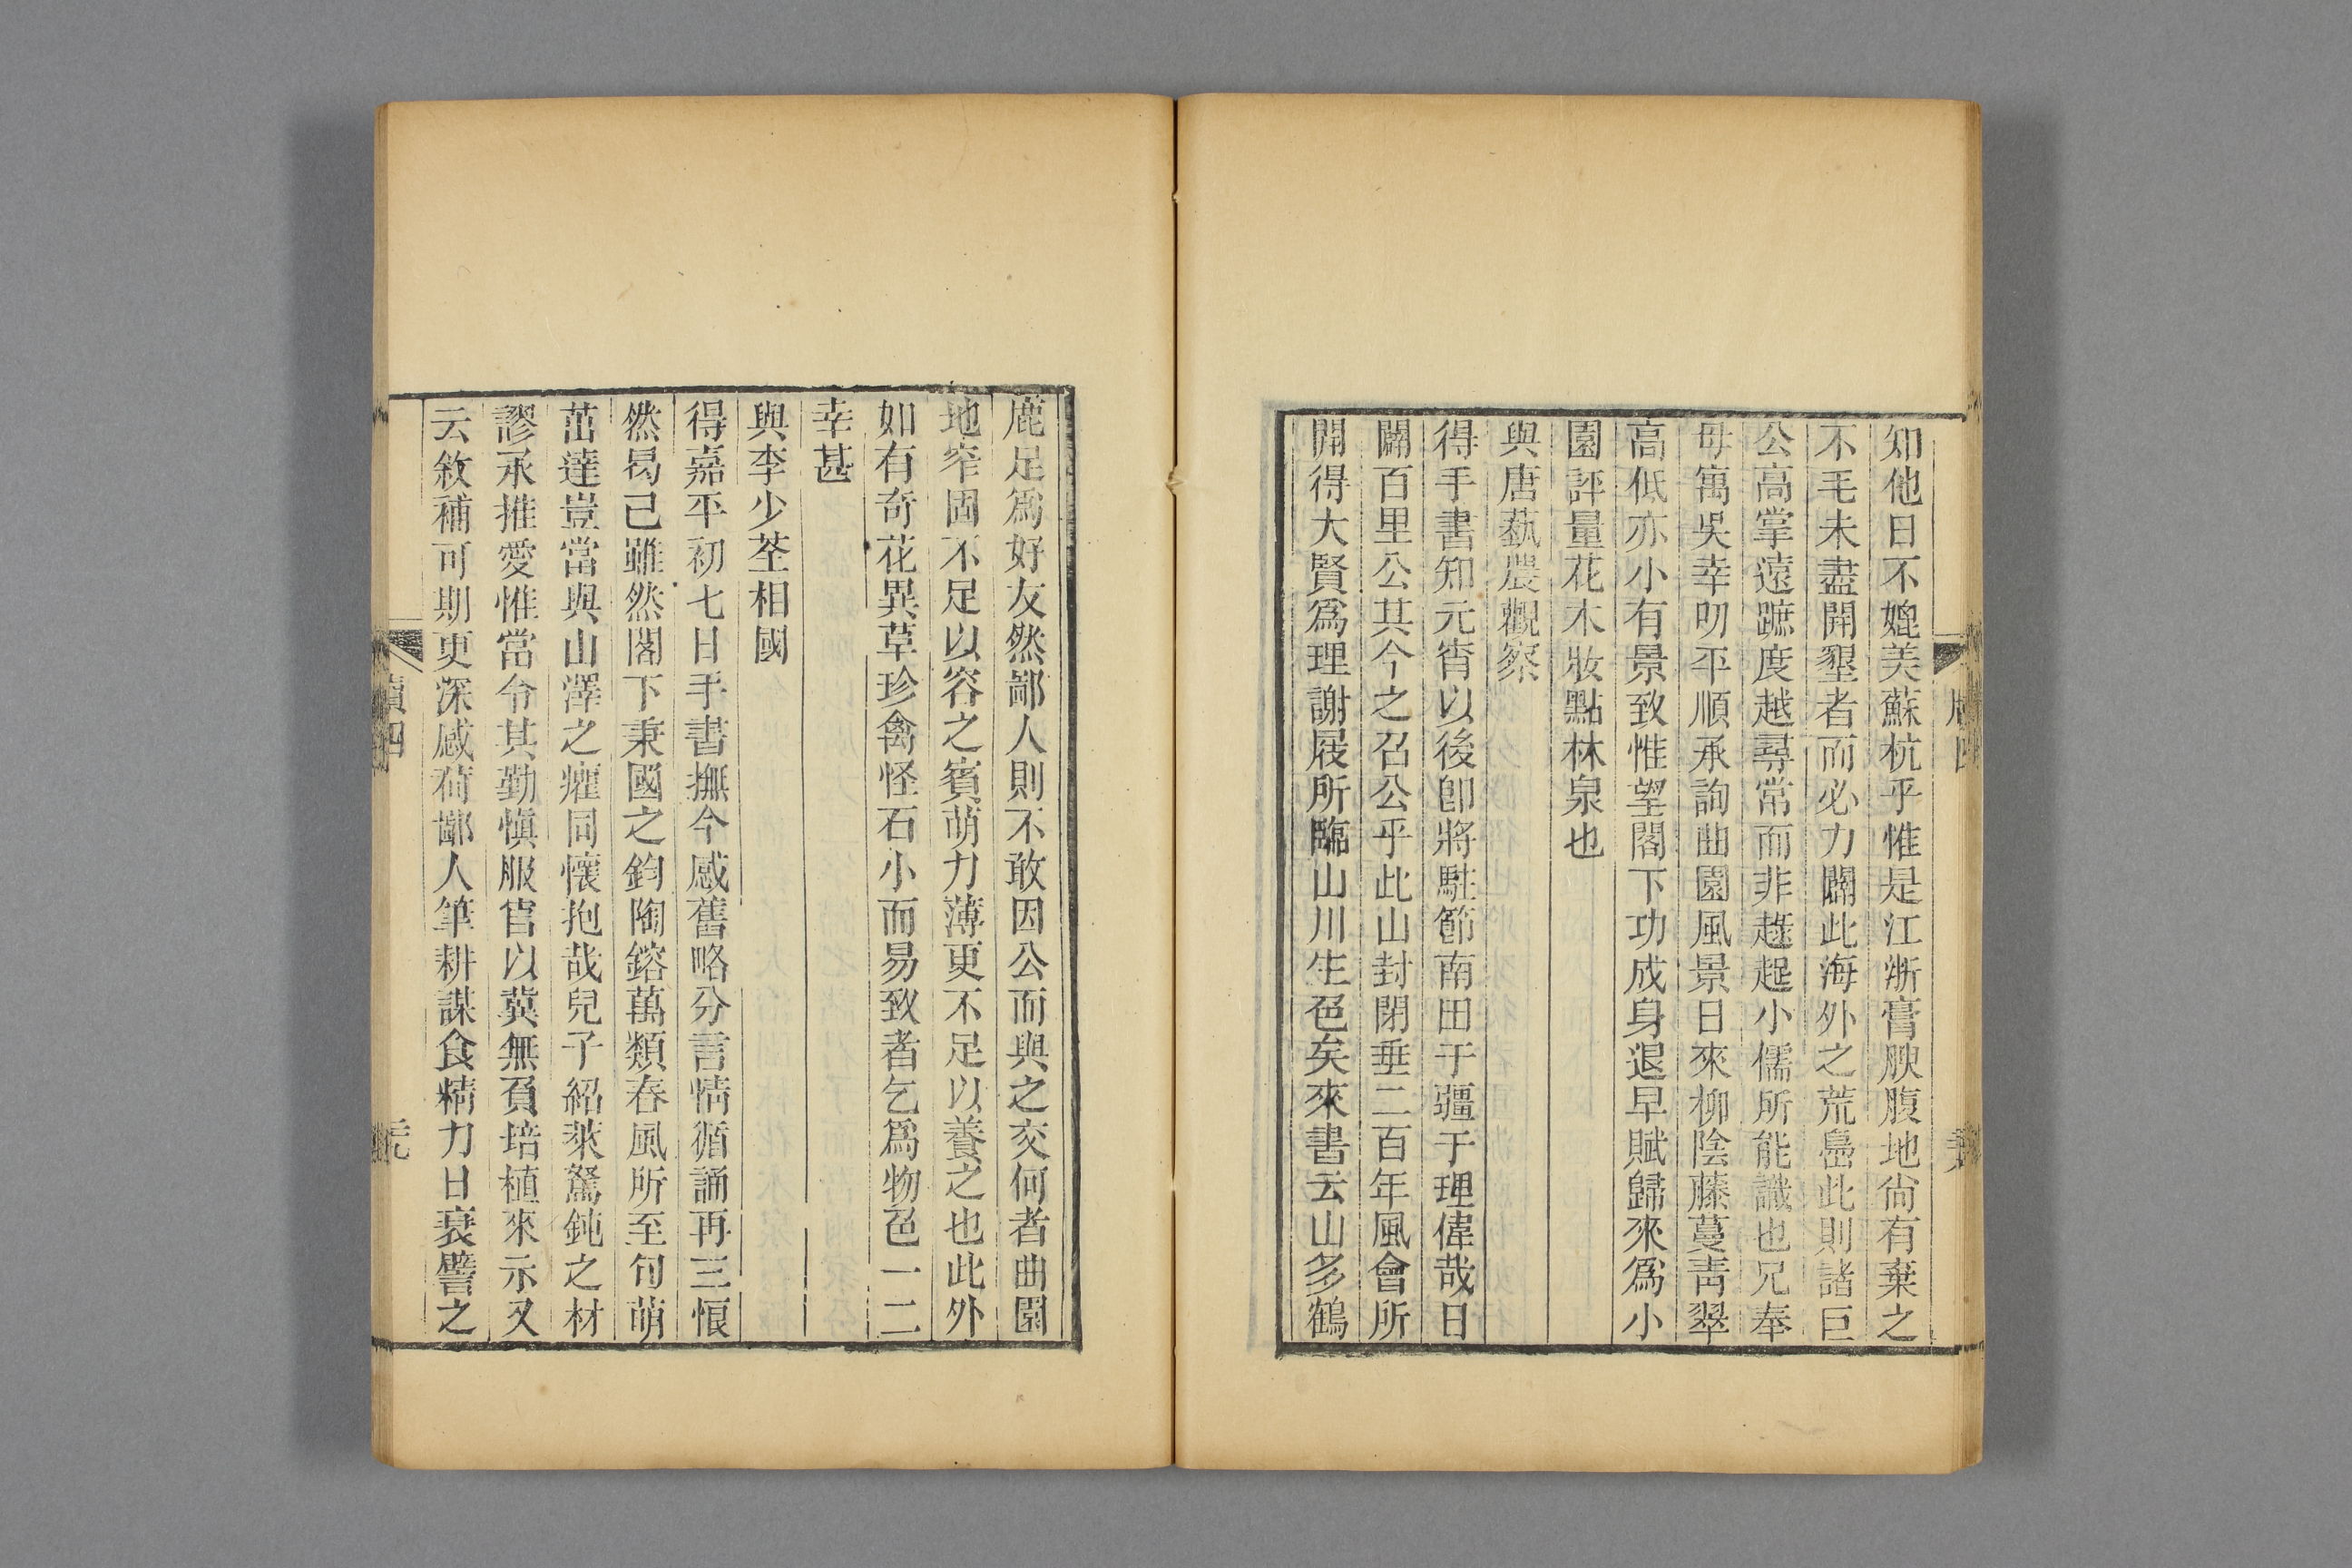 知他日不媲美蘇杭乎惟是江浙膏腴腹地尙有棄之
不毛未盡開墾者而必力闢此海外之荒島此則諸巨
公高掌遠蹠度越尋常而非趦趄小儒所能識也兄奉
母寓吳幸叨平順承詢曲園風景日來柳陰藤蔓靑翠
高低亦小有景致惟望閣下功成身退早賦歸來爲小
園評量花木妝點林泉也
與唐蓺農觀察
得手書知元宵以後卽將駐節南田于疆于理偉哉日
闢百里公其今之召公乎此山封閉垂二百年風會所
開得大賢爲理謝屐所臨山川生色矣來書云山多鶴
鹿足爲好友然鄙人則不敢因公而與之交何者曲園
地窄固不足以容之賓萌力薄更不足以養之也此外
如有奇花異草珍禽怪石小而易致者乞爲物色一二
幸甚
與李少荃相國
得嘉平初七日手書撫今感舊略分言情循誦再三悢
然曷己雖然閣下秉國之鈞陶鎔萬類春風所至句萌
茁達豈當與山澤之癯同懷抱哉兒子紹萊駑鈍之材
謬承推愛惟當令其勤愼服官以冀無負培植來示又
云敘補可期更深感荷鄙人筆耕謀食精力日衰譬之
牘四
元